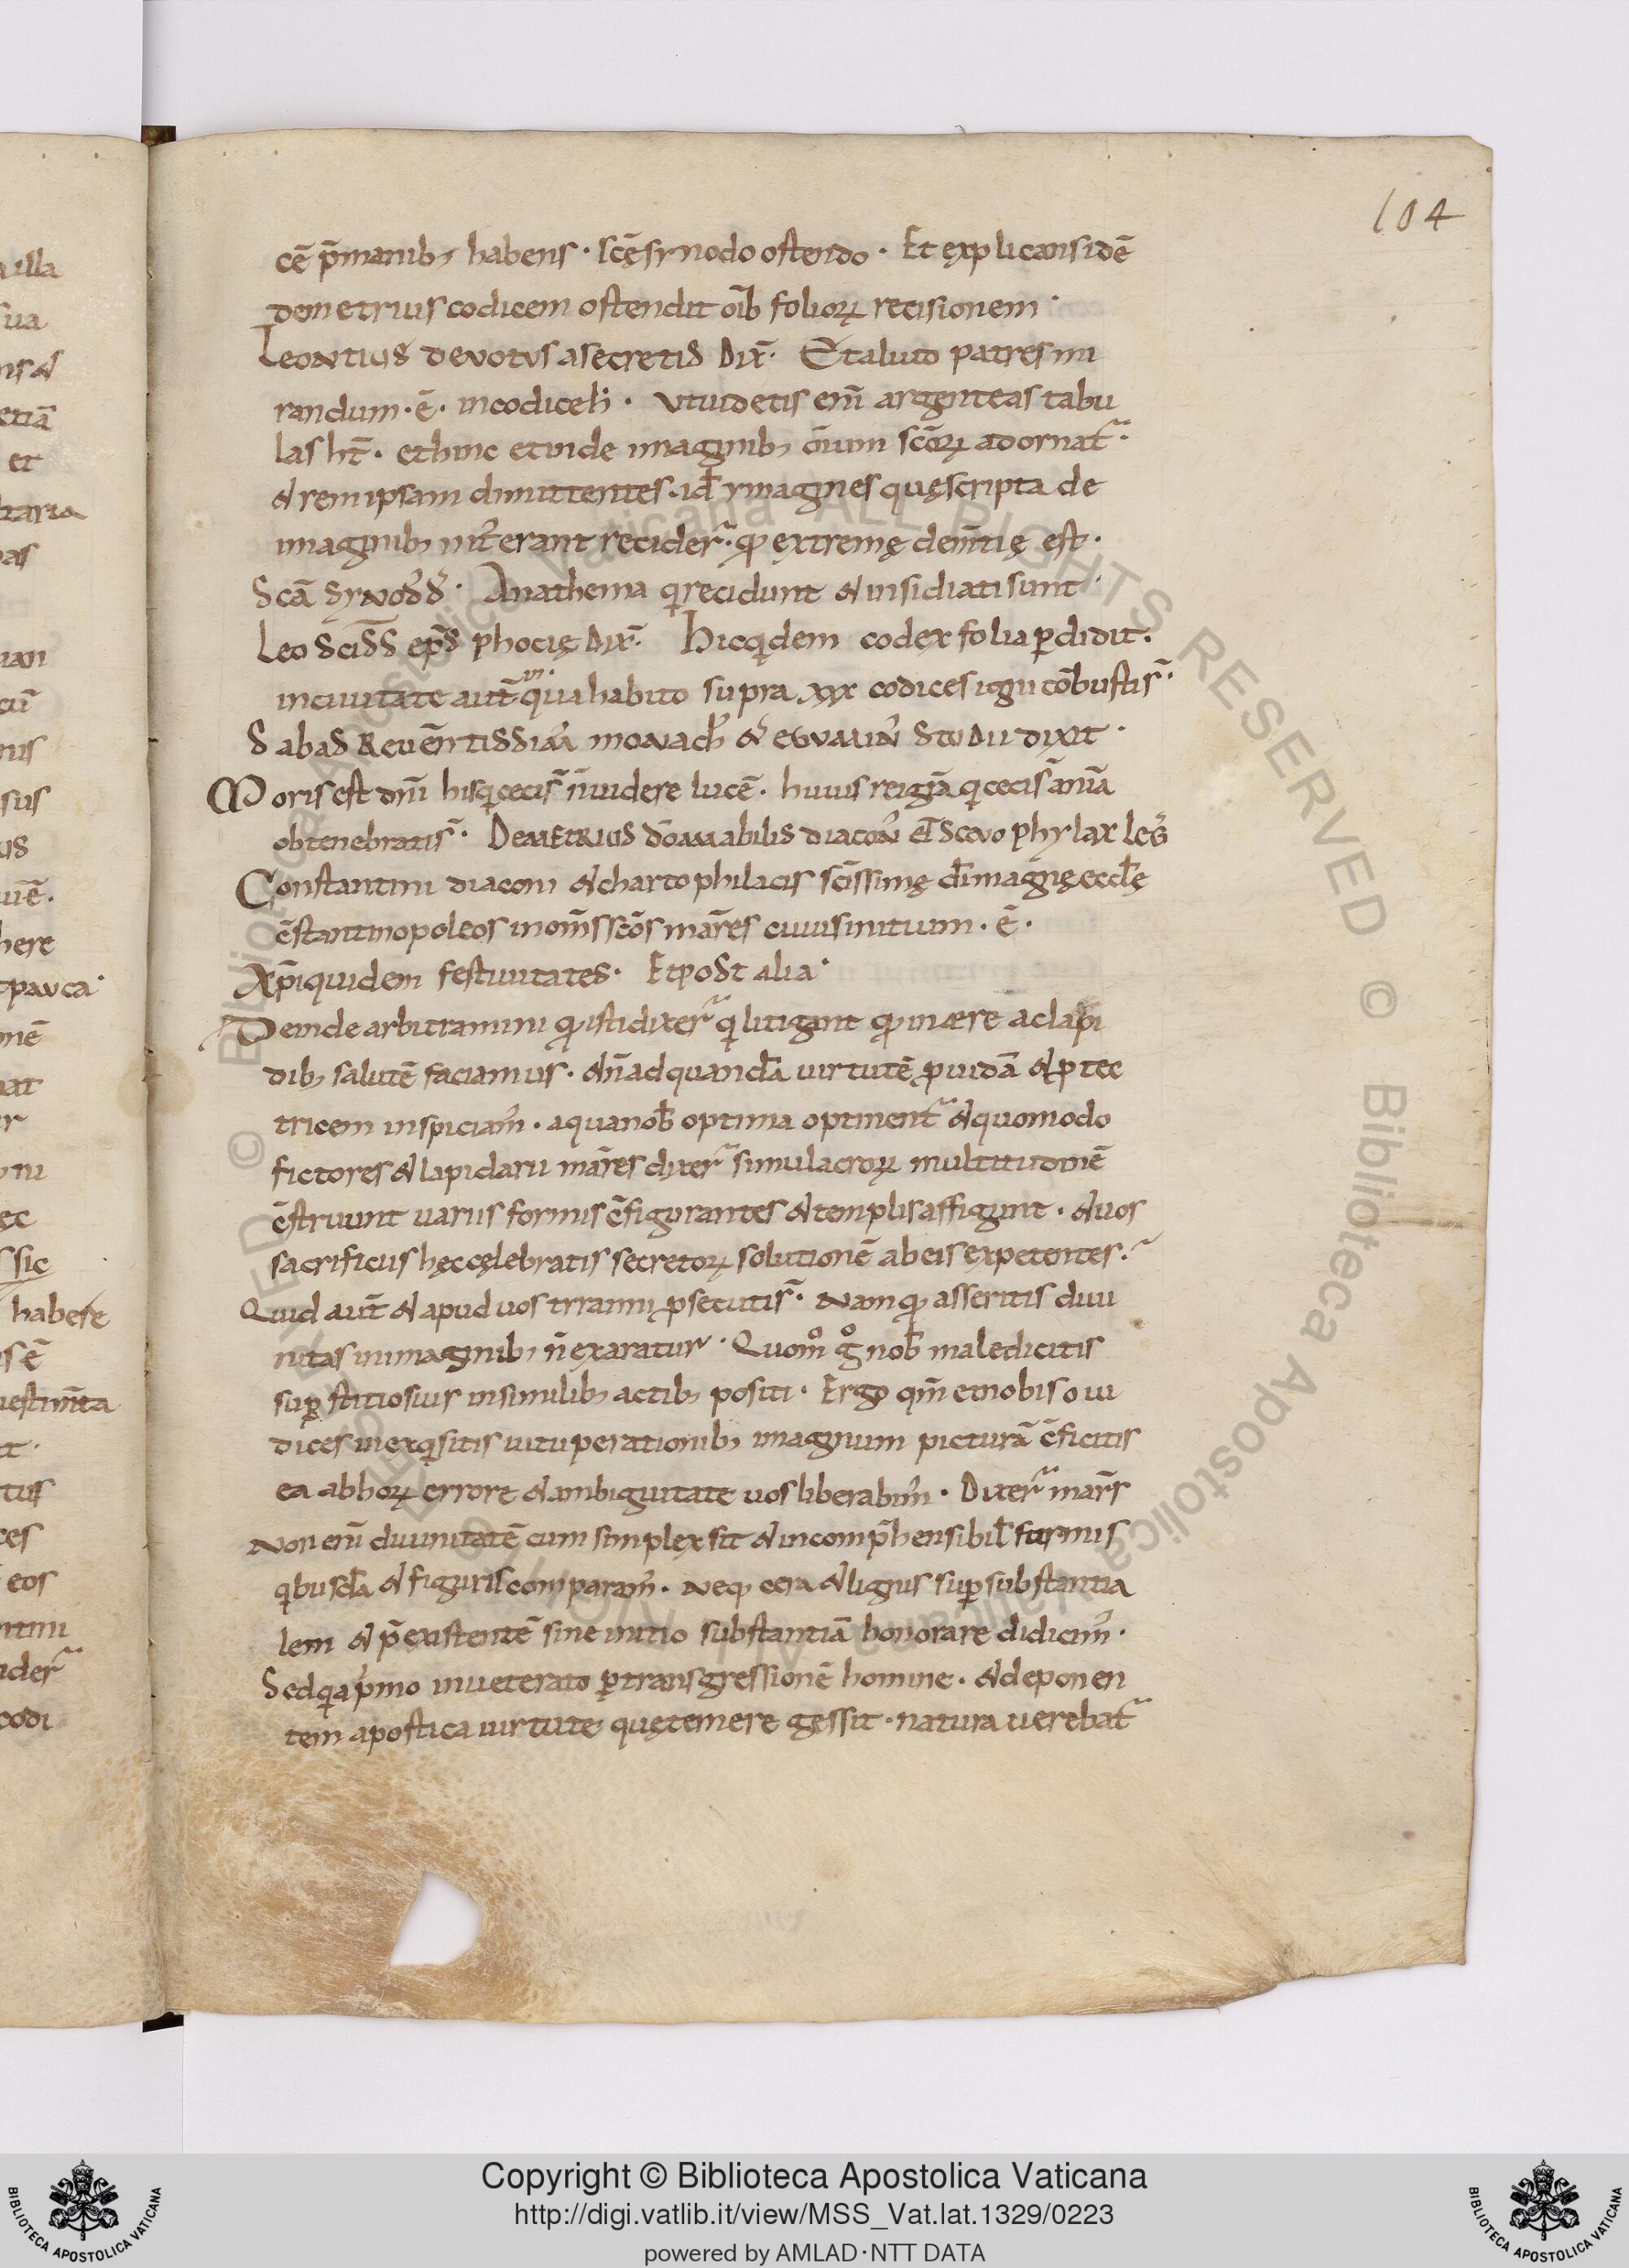 104
cē p̄manib; habens · scę synodo ostendo · Et explicans idē
demetrius codicem ostendit oīb foliorꝝ recisionem ·
Leontius devotus a secretis dix̄ · Et aliud patres mi
randum · ē · in codice h · ut videtis enī argenteas tabu
las ht̄ · et hinc et inde imaginib; oīum scōrꝝ adornat̄ ·
& rem ipsam dimittentes · id ymagines quę scripta de
imaginib; int erant recider · qđ extremę dem̄tię est ·
Scā synod d · Anathema q recidunt & insidiati sunt ·
Leo sciss eps phocię dix̄ · Hic qdem codex folia pdidit ·
in civitate aut̄ in qua habito supra xxx codices igni cōbustis ·
Sabas revēntissim monach & egumin studii dixit ·
Moris est dn̄i his q cecis n̄ videre lucē · huius rei grā q cecis animā
obtenebratis · Demetrius dō amabilis diacon et scevophylax leg
Constantini diaconi & chartophilacis scissimę dī magnę ecclę
c̄stantinopoleos in om̄s scōs mār̄es cuius initium · ē ·
Xp̄i quidem festivitates · Et post alia ·
Deinde arbitramini qđ isti dixer q litigant qđ in aere ac lapi
dib; salutē faciamus · & n̄ ad quandā virtutē p̄vidā & ptec
tricem inspiciam · a qua nob optima optinent & quomodo
fictores & lapidarii mār̄es dixer simulacrorꝝ multitudinē
c̄struunt variis formis c̄figurantes & templis affigunt · & vos
sacrificiis hęc cęlebratis secretorꝝ solutionē ab eis expetentes ·
Quid aut̄ & apud vos tyranni psecutis · Nam qđ asseritis divi
nitas in imaginib; n̄ exaratur · Quom g nob maledicitis
supstitiosius in similib; actib; positi · Ergo qm̄ et nobis o iu
dices inexqsitis vituperationib; imaginum picturā c̄ficitis
ea ab horꝝ errore & ambiguitate vos liberabim · Dixer mār̄s
Non enī divinitatē cum simplex sit & incomp̄hensibil formis
qbusdā & figuris comparam · neq; cera & lignis supsubstantia
lem & p̄existentē sine initio substantiā honorare didicim ·
Sed qa pmo inveterato p transgressionē homine · & deponen
tem apostica virtute quę temere gessit · natura verebat
Copyright © Biblioteca Apostolica Vaticana
http://digi.vatlib.it/view/MSS_Vat.lat.1329/0223
powered by AMLAD·NTT DATA
BIBLIOTECA APOSTOLICA VATICANA
BIBLIOTECA APOSTOLICA VATICANA